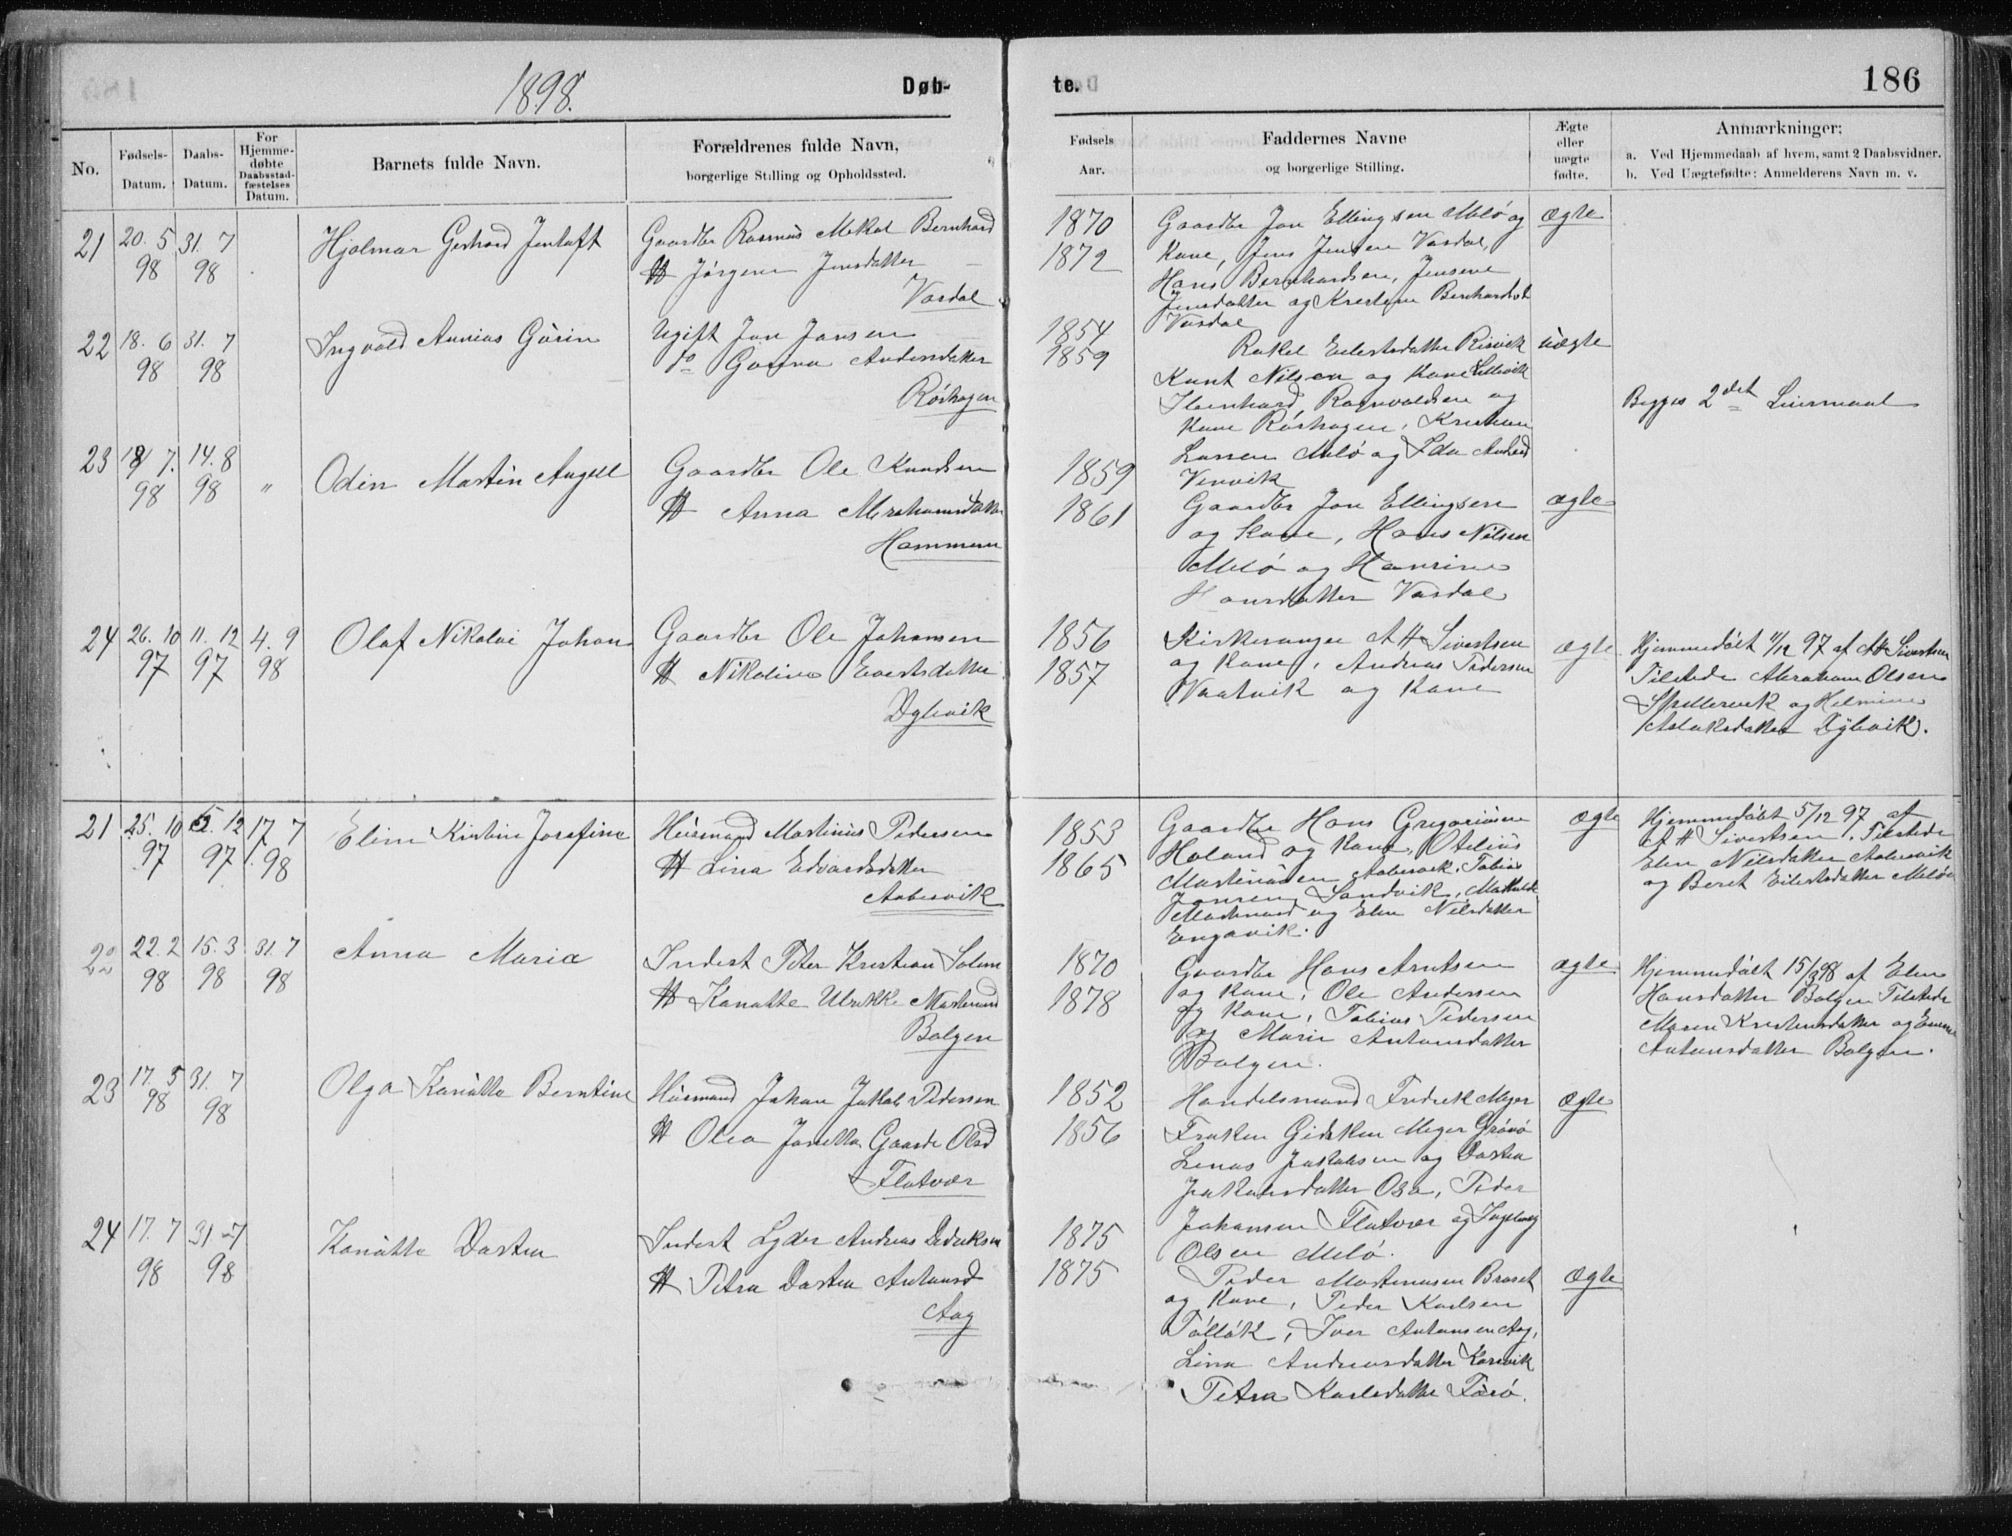 1898.
Døb-
te.
186
No.
Fødsels-
Datum.
Daabs-
Datum.
For
Hjemme-
døbte
Daabsstad-
fæstelses
Datum.
Barnets fulde Navn.
Forældrenes fulde Navn,
borgerlige Stilling og Opholdssted.
Fødsels
Aar.
Faddernes Navne
og borgerlige Stilling.
Ægte
eller
uægte
fødte.
Anmærkninger:
a. Ved Hjemmedaab af hvem, samt 2 Daabsvidner.
b. Ved Uægtefødte: Anmelderens Navn m. v.
21
20. 5
98
31. 7
98
Hjalmar Gerhard Jentoft
Gaardbr Rasmus Mekal Bernhard
H Jørgine Jensdatter
Vasdal
1870
1872
Gaardbr Jon Ellingsen Melø og
Kone, Jens Jensen Vasdal,
Hans Bernhardsen, Jensine
Jensdatter og Kristine Bernhardsd
Vasdal
ægte
22
18. 6
98
31. 7
98
Ingvald Annias Gurin
Ugift Jon Jansen
do Gurina Andersdatter
Røshagen
1854
1859
Rakel Eilertsdatter Risvik
Knut Nilsen og Kone Lillevik
Ragnvaldsen og
Kone Røshagen, Kristian
Larsen Melø og Ida
uægte
Begges 2det Leiermaal
23
18 7.
98
14. 8
98
"
Odin Martin Angell
Gaardbr Ole Knudsen
H Anna Abrahamsdatter
Hammeren
1859
1861
Gaardbr Jon Ellingsen
og Kone, Hans Nilsen
Melø og Hanrine
Hansdatter Vasdal
ægte
24
26. 10
97
11. 12
97
4. 9
98
Olaf Nikolai Johan
Gaardbr Ole Johansen
H Nikoline Evertsdatter
Dybvik
1856
1857
Kirkesanger A H Sivertsen
og Kone, Andreas Pedersen
Vaatvik og Kone
ægte
Hjemmedøbt 11/12 97 af A H Sivertsen
Tilstede Abraham Olsen
Skillervik og Helmine
Aslaksdatter Dybvik.
21
25. 10
97
5. 12
97
17 7
98
Eline Kirstine Josefine
Husmand Martinus Pedersen
H Lina Edvardsdatter
Aabervik
1853
1865
Gaardbr Hans Gregoriusen
Haland og Kone, Otelius
Martinusen Aabervik, Tobias
Jonsen Sandvik, Mathilde
Martinusd og Elen Nilsdatter
Engavik.
ægte
Hjemmedøbt 5/12 97 af
A H Sivertsen. Tilstede
Elen Nilsdatter Aabervik
og Beret Eilertsdatter Melø
22
22. 2
98
15. 3
98
31. 7
98
Anna Maria
Inderst Peter Kristian Salem
H Kanutte Ulrikke Martinusd
Bolgen
1870
1878
Gaardbr Hans Arntsen
og Kone, Ole Andersen
og Kone, Tobias Pedersen
og Marie Antonsdatter
Bolgen.
ægte
Hjemmedøbt 15/3 98 af Elen
Hansdatter Bolgen Tilstede
Maren Kristensdatter og Emma
Antonsdatter Bolgen.
23
17. 5
98
31. 7
98
Olga Kanutta Berntine
Husmand Johan Jakob Pedersen
H Olea Janetta Gaarde Olsd
Flatvær
1852
1856
Handelsmand Fredrek Meyer
Frøken Gidsken Meyer Grønø
Lenas Jakobsen og Dortea
Jakobsdatter Osa, Peder
Johansen Flatvær og Ingeborg
Olsen Melø.
ægte
24
17. 7
98
31 7
98
Kanutte Dortea
Inderst Lyder Andreas Dedreksen
H Petra Dortea Antonsd
Aag
1875
1875
Peder Martinusen Braset
og Kone, Peder Karlsen
, Iver Antonsen Aag,
Lina Andreasdatter Korsvik
Petra Karlsdatter Forø.
ægte